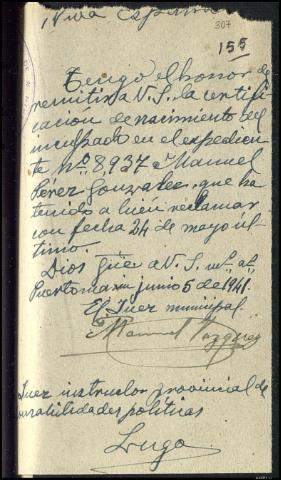 ¡Viva España!
307
155
Tengo el honor de
remitir a V.S., la certifi-
cacion de nacimiento del
inculpado en el expedien-
te nº 8,937 Manuel
Pérez Gonzalez, que ha
tenido a bien reclamar
con fecha 24 de mayo úl-
timo.
Dios güe a V.S. mº aº
Puertomarin junio 5 de 1941.
El Juez municipal.
Manuel Vazquez
Juez instructor provincial de
responsabilidades politicas
Lugo